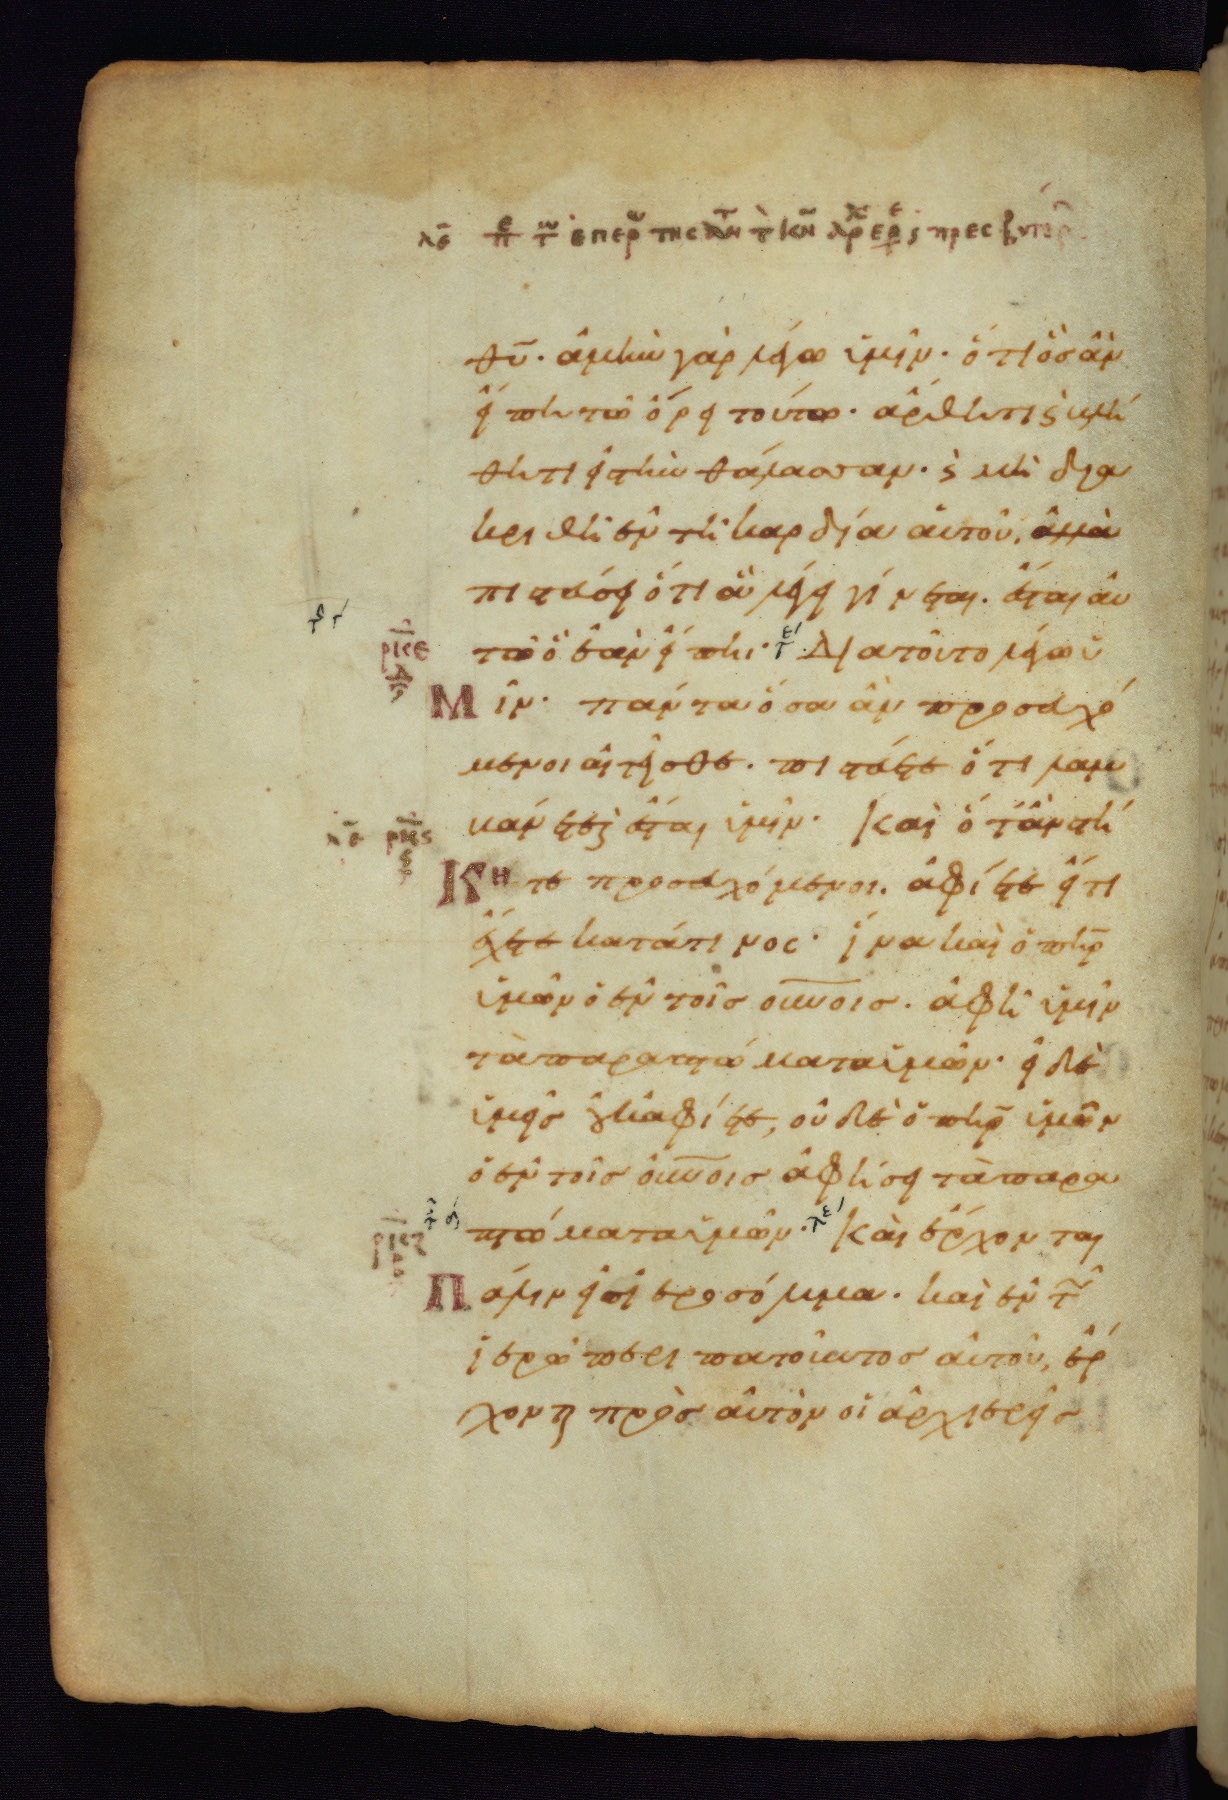 λε π τ επερ της τ κν αρχερε ς πρεσβυτερ
θυ. ἀμὴν γὰρ λέγω ὑμῖν. ὅτι ὃς ἂν
εἴπη τῶ ὄρει τούτω. ἄρθητι ς βλή
θητι εἰς τὴν θάλασσαν. ς μὴ δια
κριθῆ ἐν τῆ καρδία αὐτοῦ, ἀλλὰ
πιστεύσει ὅτι ἃ λέγει γίνεται. ἔσται αὐ
τῶ ὃ ἐὰν εἴπη· Διατοῦτο λέγω ὑ
ρκε
Μῖν· πάντα ὅσα ἂν προσευχό
μενοι αἰτεῖσθε. πιστεύετε ὅτι λαμ
βάνετε, καὶ ἔσται ὑμῖν· Καὶ ὅταν στή
λε ρκς
ς
Κητε προσευχόμενοι. ἀφίετε εἴ τι
ἔχετε κατά τινος· ἵνα καὶ ὁ πηρ
ὑμῶν ὁ ἐν τοῖς οὐνοις. ἀφῆ ὑμῖν
τὰ παραπτώματα ὑμῶν· εἰ δὲ
ὑμεῖς οὐκ ἀφίετε, οὐδὲ ὁ πηρ ὑμῶν
ὁ ἐν τοῖς οὐνοις ἀφήσει τὰ παρα
πτώματα ὑμῶν· Καὶ ἔρχονται
ρκζ
Πάλιν εἰς ἱεροσόλυμα. καὶ ἐν τῶ
ἱερῶ περιπατοῦντος αὐτοῦ, ἔρ
χονται πρὸς αὐτὸν οἱ ἀρχιερεῖς